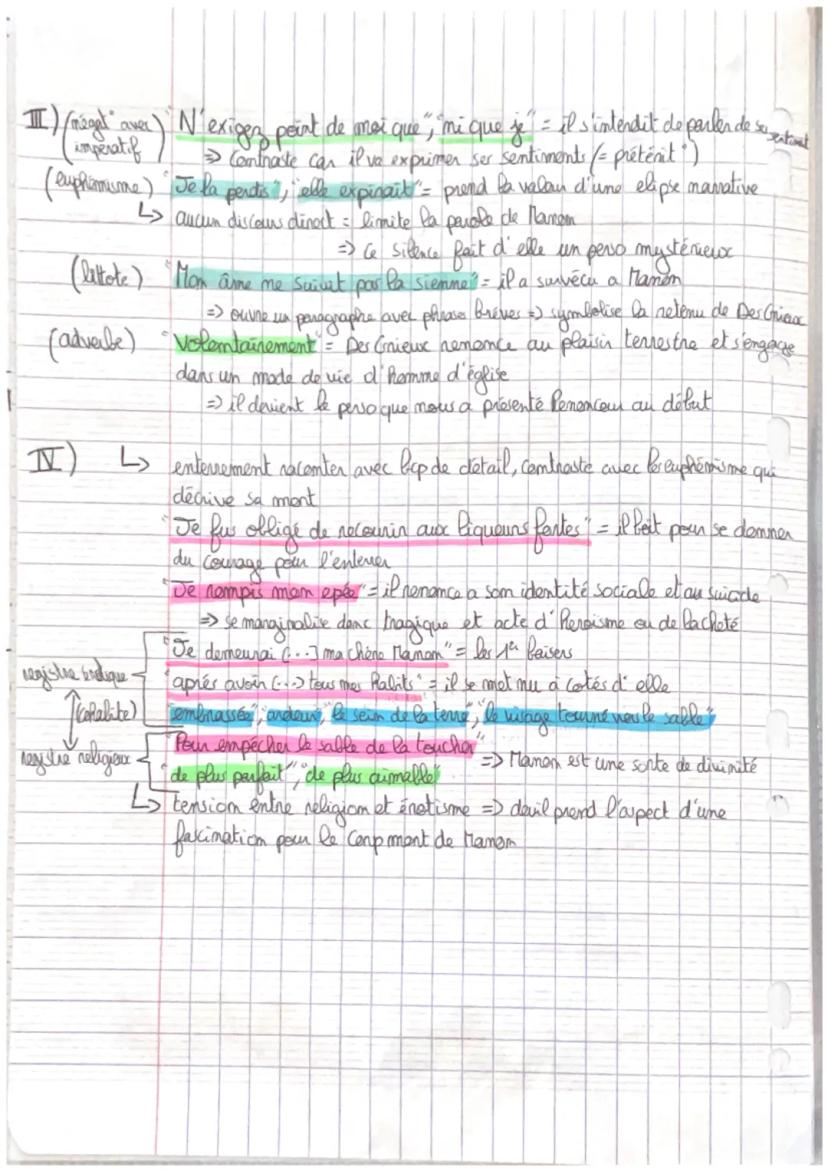 III) (négat° avec impératif) "N'exigez point de moi que", "ni que je" = il s'interdit de parler de ses sentiment
=> Contraste car il va exprimer ses sentiments (= prétérit°)
(euphémisme) "Je la perdis", "elle expirait" = prend la valeur d'une elipse narrative
↳ aucun discours direct = limite la parole de Manon
=> Ce silence fait d'elle un perso mystérieux
(littote) "Mon âme me suivit pas la sienne" = il a survécu a Manon
=> ouvre un paragraphe avec phrase brèves => symbolise la retenu de Des Grieux
(adverbe) "Volontairement" = Des Grieux renonce au plaisir terrestre et s'engage
dans un mode de vie d'homme d'église
=> il devient le perso que nous a présenté Renoncour au début
IV) ↳ enterrement raconter avec bcp de détail, contraste avec les euphémisme qui
décrive sa mort
"Je fus obligé de recourir aux liqueurs fortes" = il boit pour se donner
du courage pour l'enterrer
"Je rompis mon epée" = il renonce a son identité sociale et au suicide
=> se marginalise donc tragique et acte d'héroïsme ou de lacheté
"Je demeurai (...) ma chère Manon" = les 1er baisers
registre érotique "après avoir (...) tous mes habits" = il se met nu à cotés d'elle
(coralité) "embrassée", "ardeur", "le sein de la terre", "le visage tourné vers le sable"
"Pour empécher le sable de la toucher"
registre religieux "de plus parfait", "de plus aimable" => Manon est une sorte de divinité
↳ tension entre religion et érotisme => deuil prend l'aspect d'une
fascination pour le corp mort de Manon